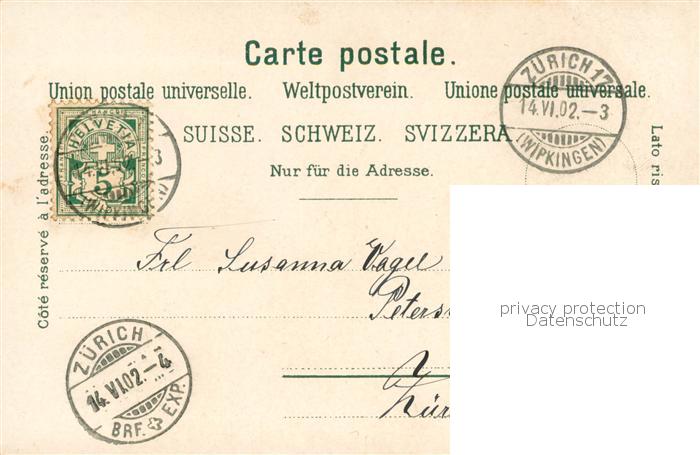 Carte postale.
Union postale universelle. Weltpostverein. Unione postale universale.
SUISSE. SCHWEIZ. SVIZZERA.
Nur für die Adresse.
Côté réservé à l'adresse.
Lato ris
HELVETIA
5
(WIPKINGEN)
ZÜRICH 17
14.VI.02.-3
(WIPKINGEN)
Frl Susanna Vogel
Peters
Zür
ZÜRICH
14.VI.02.-4
BRF. EXP.
privacy protection
Datenschutz